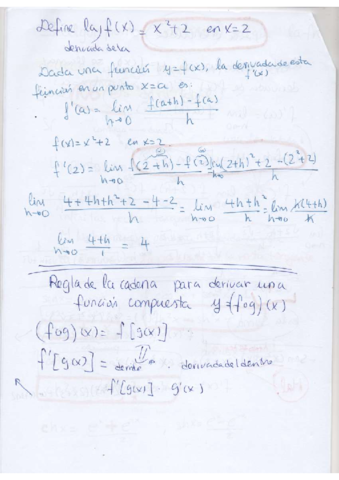 Define la f(x) = x²+2 en x=2
derivada de la
Dada una función y=f(x), la derivada de esta f'(x)
función en un punto x=a es:
f'(a) = lim h→0 f(a+h) - f(a) / h
f(x)=x²+2 en x=2
f'(2) = lim h→0 f(2+h) - f(2) / h = lim h→0 (2+h)²+2-(2²+2) / h
lim h→0 4+4h+h²+2-4-2 / h = lim h→0 4h+h² / h = lim h→0 h(4+h) / h
lim h→0 4+h / 1 = 4
Regla de la cadena para derivar una
función compuesta y=(fog)(x)
(fog)(x) = f[g(x)]
f'[g(x)] = · derivada del dentro
f'[g(x)] · g'(x)